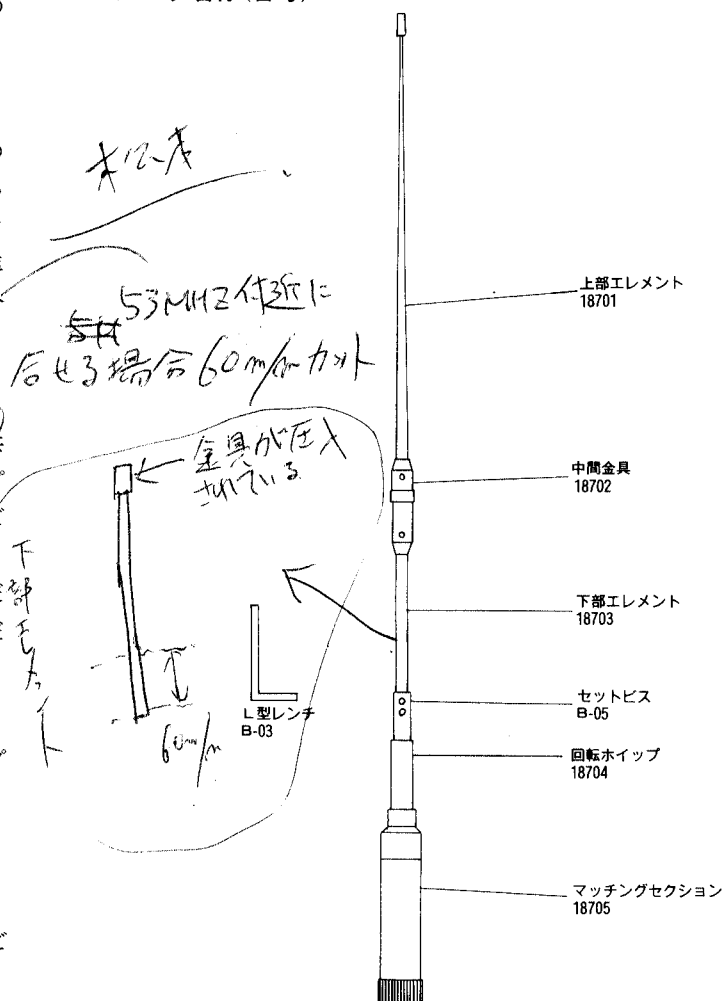 53MHZ付近に
合せる場合60m/mカット
金具が圧入
されている
下部エレメント
60m/m
L型レンチ
B-03
上部エレメント
18701
中間金具
18702
下部エレメント
18703
セットビス
B-05
回転ホイップ
18704
マッチングセクション
18705